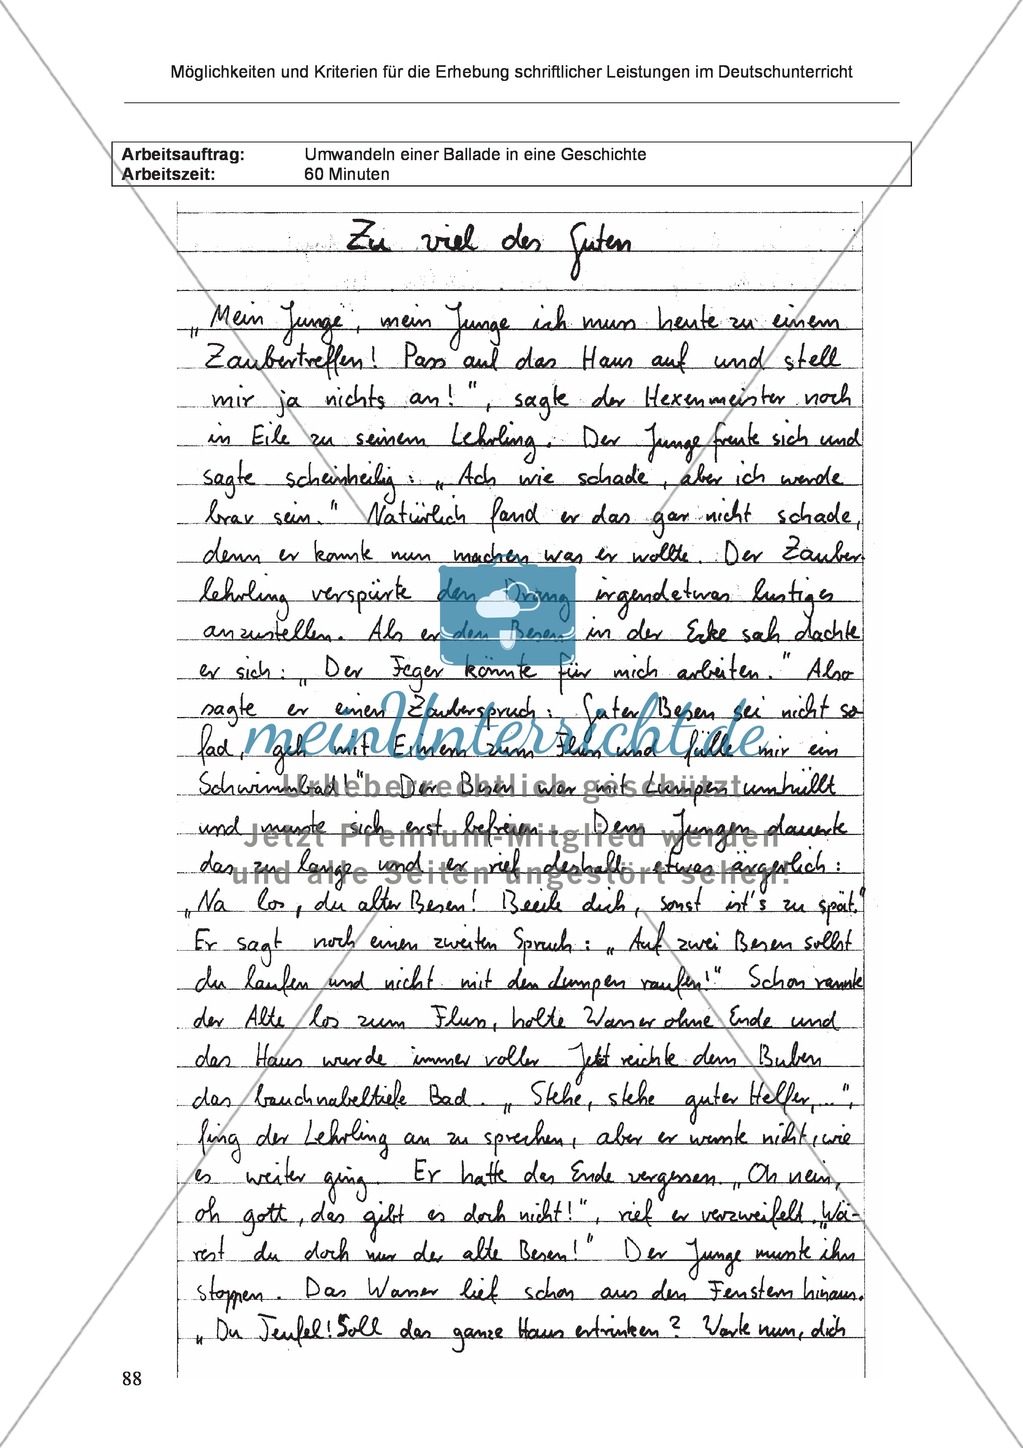 Möglichkeiten und Kriterien für die Erhebung schriftlicher Leistungen im Deutschunterricht
Arbeitsauftrag: Umwandeln einer Ballade in eine Geschichte
Arbeitszeit: 60 Minuten
Zu viel des Guten
„Mein Junge, mein Junge ich muss heute zu einem
Zaubertreffen! Pass auf das Haus auf und stell
mir ja nichts an!", sagte der Hexenmeister noch
in Eile zu seinem Lehrling. Der Junge freute sich und
sagte scheinheilig: „Ach wie schade, aber ich werde
brav sein." Natürlich fand er das gar nicht schade,
denn er konnte nun machen was er wollte. Der Zauber-
lehrling verspürte den Drang irgendetwas lustiges
anzustellen. Als er den Besen in der Ecke sah dachte
er sich: „Der Feger könnte für mich arbeiten." Also
sagte er einen Zauberspruch: Guter Besen sei nicht so
fad, geh mit Eimern zum Fluss und fülle mir ein
Schwimmbad!" Der Besen war mit Lumpen umhüllt
und musste sich erst befreien. Dem Jungen dauerte
das zu lange und er rief deshalb etwas ärgerlich:
„Na los, du alter Besen! Beeile dich, sonst ist's zu spät."
Er sagt noch einen zweiten Spruch: „Auf zwei Besen sollst
du laufen und nicht mit den Lumpen raufen!" Schon rannte
der Alte los zum Fluss, holte Wasser ohne Ende und
das Haus wurde immer voller Jetzt reichte dem Buben
das bauchnabeltiefe Bad. „Stehe, stehe guter Helfer,...",
fing der Lehrling an zu sprechen, aber er wusste nicht, wie
es weiter ging. Er hatte das Ende vergessen. „Oh nein,
oh gott, das gibt es doch nicht!", rief er verzweifelt. „Wä-
rest du doch nur der alte Besen!" Der Junge musste ihn
stoppen. Das Wasser lief schon aus den Fenstern hinaus.
„Du Teufel! Soll das ganze Haus ertrinken? Warte nun, dich
88
meinUnterricht.de
Urheberrechtlich geschützt
Jetzt Premium-Mitglied werden
und alle Seiten ungestört sehen!